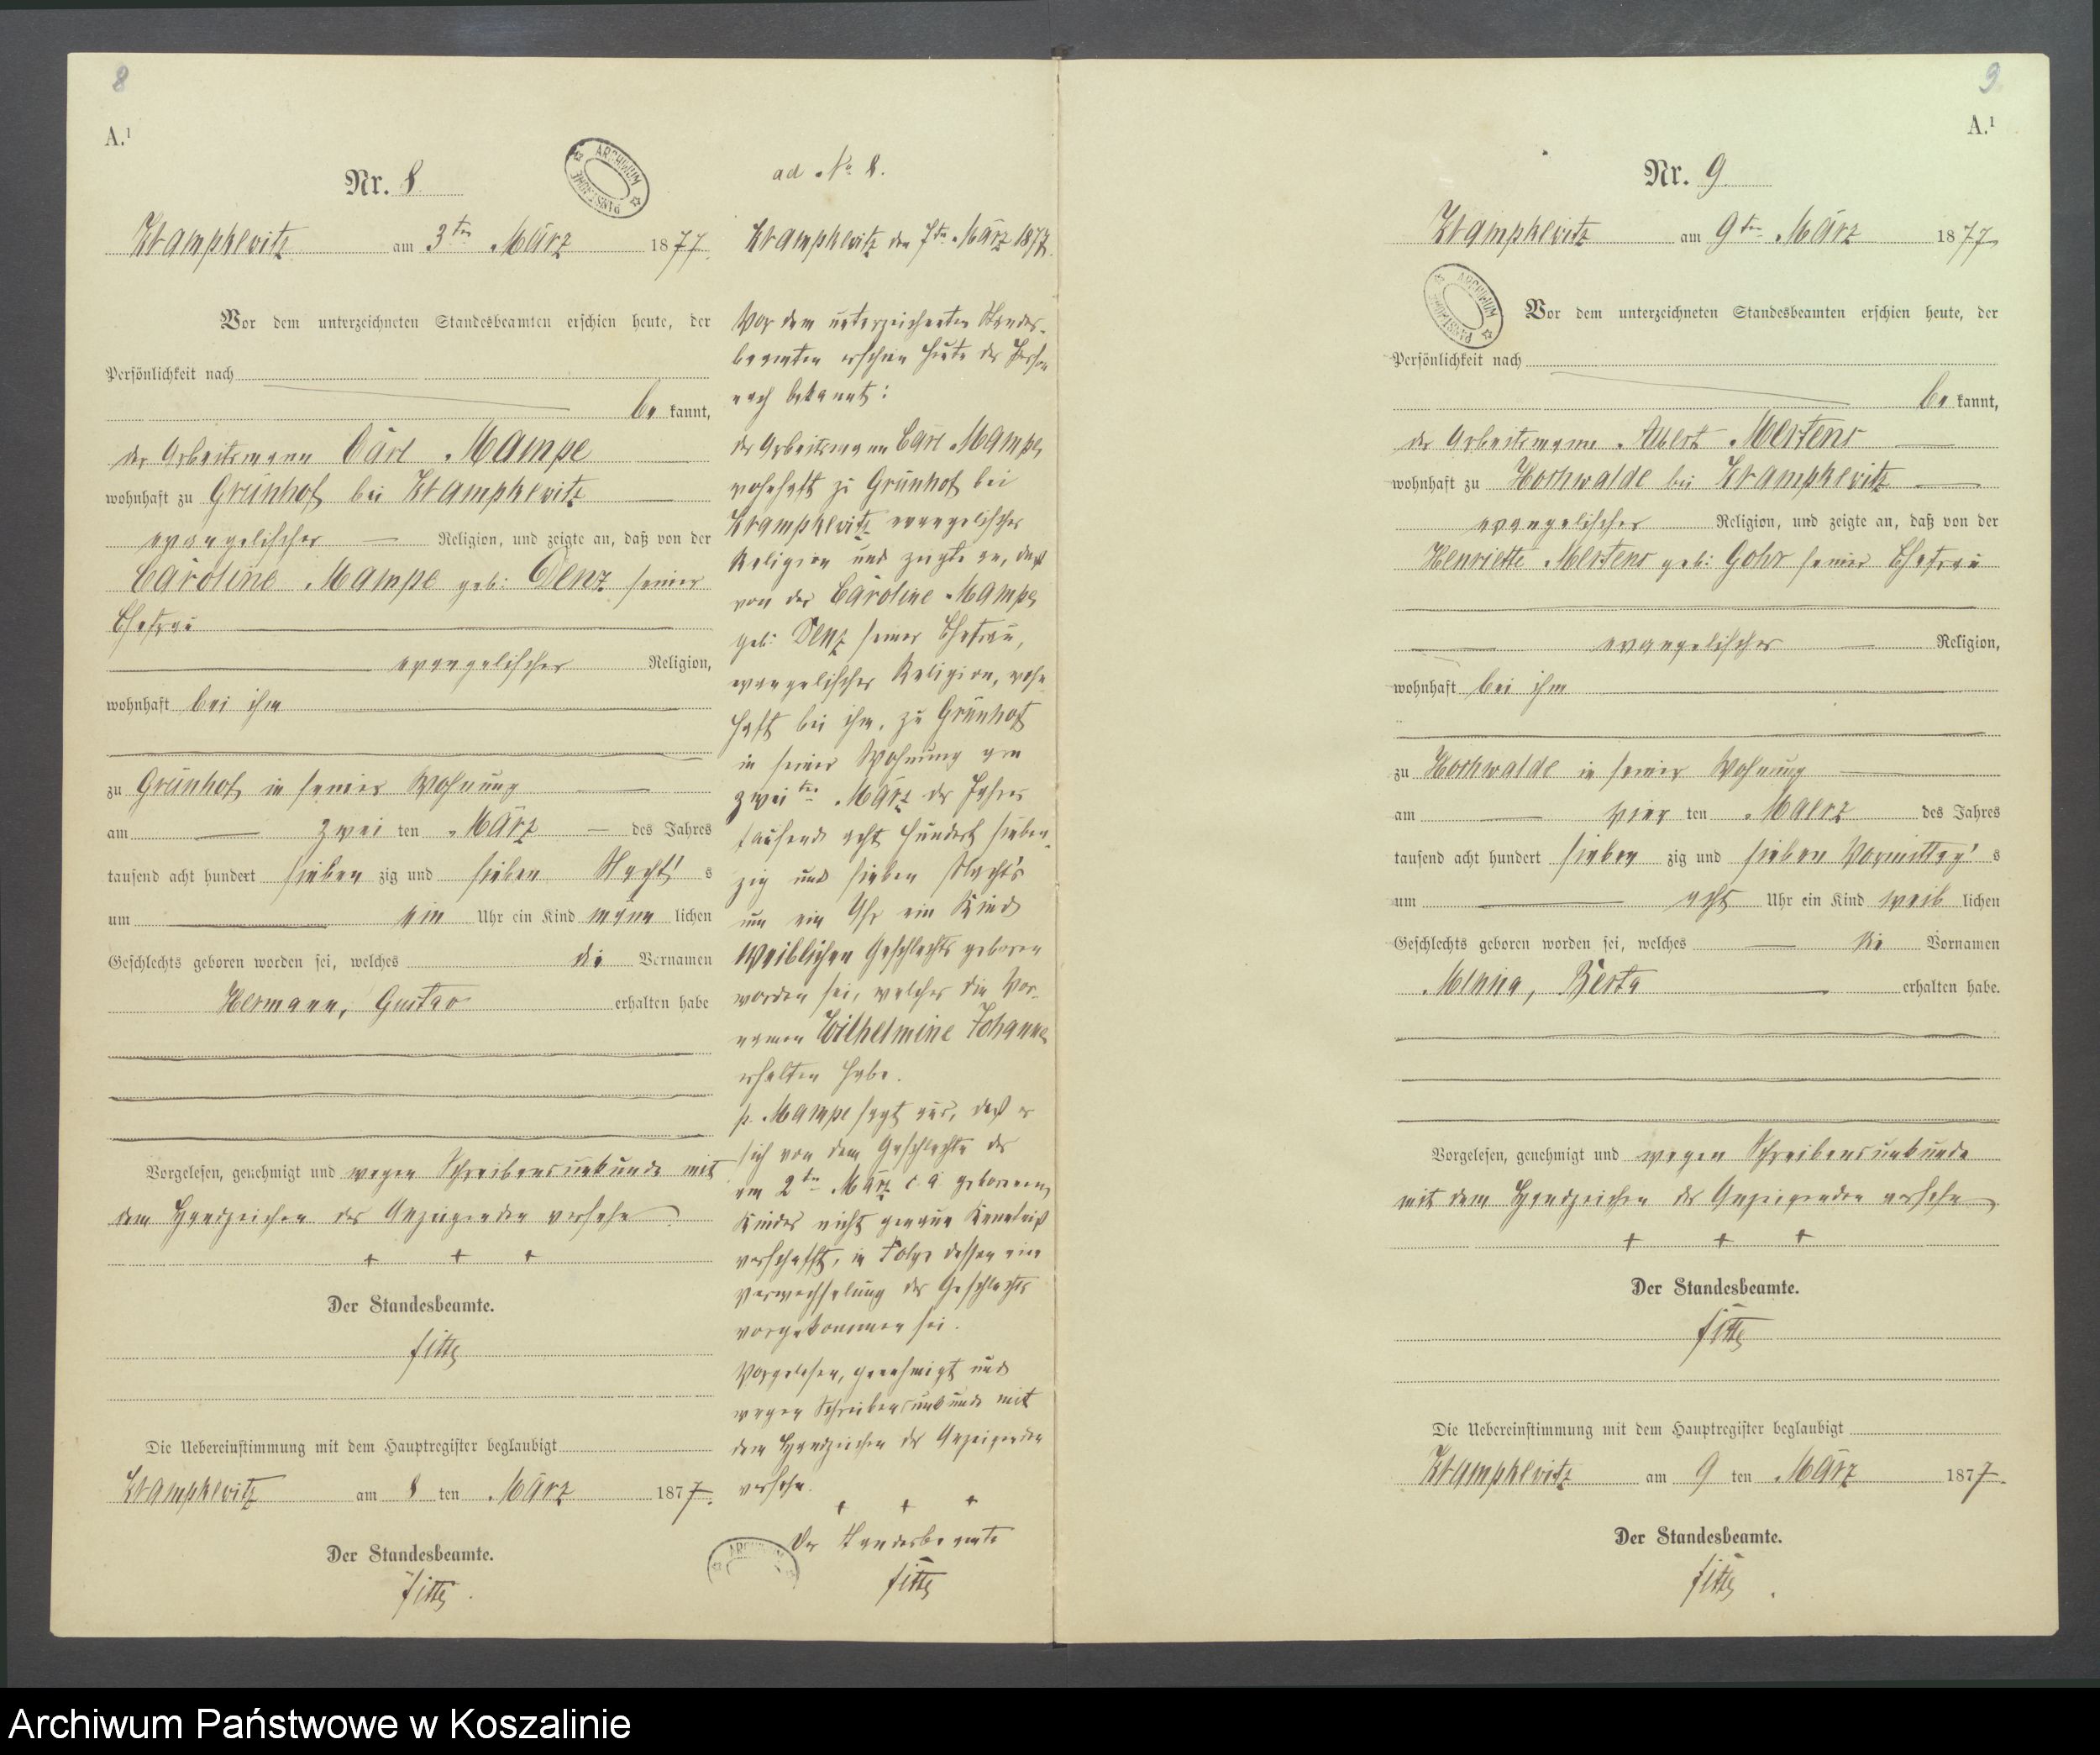 8
A.¹
Nr. 8
ARCHIWUM PAŃSTWOWE
Krampkewitz am 3ten März 1877.
Vor dem unterzeichneten Standesbeamten erschien heute, der
Persönlichkeit nach
be kannt,
der Arbeitsmann Carl Mampe
wohnhaft zu Grünhof bei Krampkewitz
evangelischer Religion, und zeigte an, daß von der
Caroline Mampe geb: Denz seiner
Ehefrau
evangelischer Religion,
wohnhaft bei ihm
zu Grünhof in seiner Wohnung
am zwei ten März des Jahres
tausend acht hundert sieben zig und sieben Nacht' s
um ein Uhr ein Kind männ lichen
Geschlechts geboren worden sei, welches die Vornamen
Hermann, Gustav erhalten habe
Vorgelesen, genehmigt und wegen Schreibensunkunde mit
dem Handzeichen des Anzeigenden versehn
+ + +
Der Standesbeamte.
Die Uebereinstimmung mit dem Hauptregister beglaubigt
Krampkewitz am 8 ten März 1877.
Der Standesbeamte.
ad No 8.
Krampkewitz den 7ten März 1877.
Vor dem unterzeichneten Standes-
beamten erschien heute der Person
nach bekannt:
der Arbeitsmann Carl Mampe,
wohnhaft zu Grünhof bei
Krampkewitz evangelischer
Religion und zeigte an, daß
von der Caroline Mampe,
geb: Denz seiner Ehefrau,
evangelischer Religion, wohn
haft bei ihm, zu Grünhof
in seiner Wohnung am
zweiten März des Jahres
tausend acht hundert sieben-
zig und sieben Nachts
um ein Uhr ein Kind
weiblichen Geschlechts geboren
worden sei, welches die Vor-
namen Wilhelmine Johanne
erhalten habe.
p. Mampe sagt aus, daß er
sich von dem Geschlechte des
am 2ten März c. a. geborenen
Kindes nicht genaue Kenntniß
verschafft, in Folge dessen eine
Verwechselung des Geschlechts
vorgekommen sei.
Vorgelesen, genehmigt und
wegen Schreibensunkunde mit
dem Handzeichen des Anzeigenden
versehn.
+ + +
Der Standesbeamte
ARCHIWUM
9
A.¹
Nr. 9
Krampkewitz am 9ten März 1877
ARCHIWUM PAŃSTWOWE
Vor dem unterzeichneten Standesbeamten erschien heute, der
Persönlichkeit nach
be kannt,
der Arbeitsmann Albert Mertens
wohnhaft zu Hochwalde bei Krampkewitz
evangelischer Religion, und zeigte an, daß von der
Henriette Mertens geb: Gohr seiner Ehefrau
evangelischer Religion,
wohnhaft bei ihm
zu Hochwalde in seiner Wohnung
am vier ten Maerz des Jahres
tausend acht hundert sieben zig und sieben Vormittag' s
um acht Uhr ein Kind weib lichen
Geschlechts geboren worden sei, welches die Vornamen
Minna, Berta erhalten habe.
Vorgelesen, genehmigt und wegen Schreibensunkunde
mit dem Handzeichen des Anzeigenden versehn
+ + +
Der Standesbeamte.
Die Uebereinstimmung mit dem Hauptregister beglaubigt
Krampkewitz am 9 ten März 1877.
Der Standesbeamte.
Archiwum Państwowe w Koszalinie